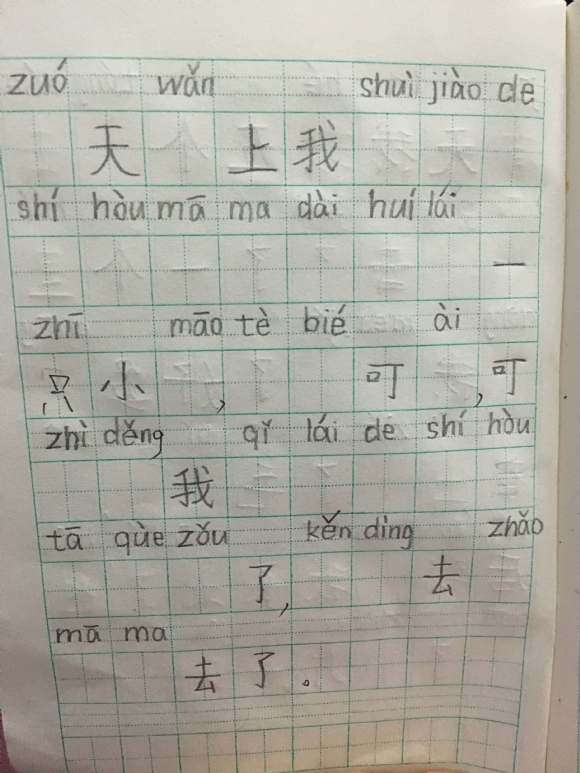 zuó wǎn shuì jiào de
天 上 我
shí hòu mā ma dài huí lái
一
zhī māo tè bié ài
只 小 , 可 , 可
zhì děng qǐ lái de shí hòu
我
tā qùe zǒu kěn dìng zhǎo
了 , 去
mā ma
去 了 。